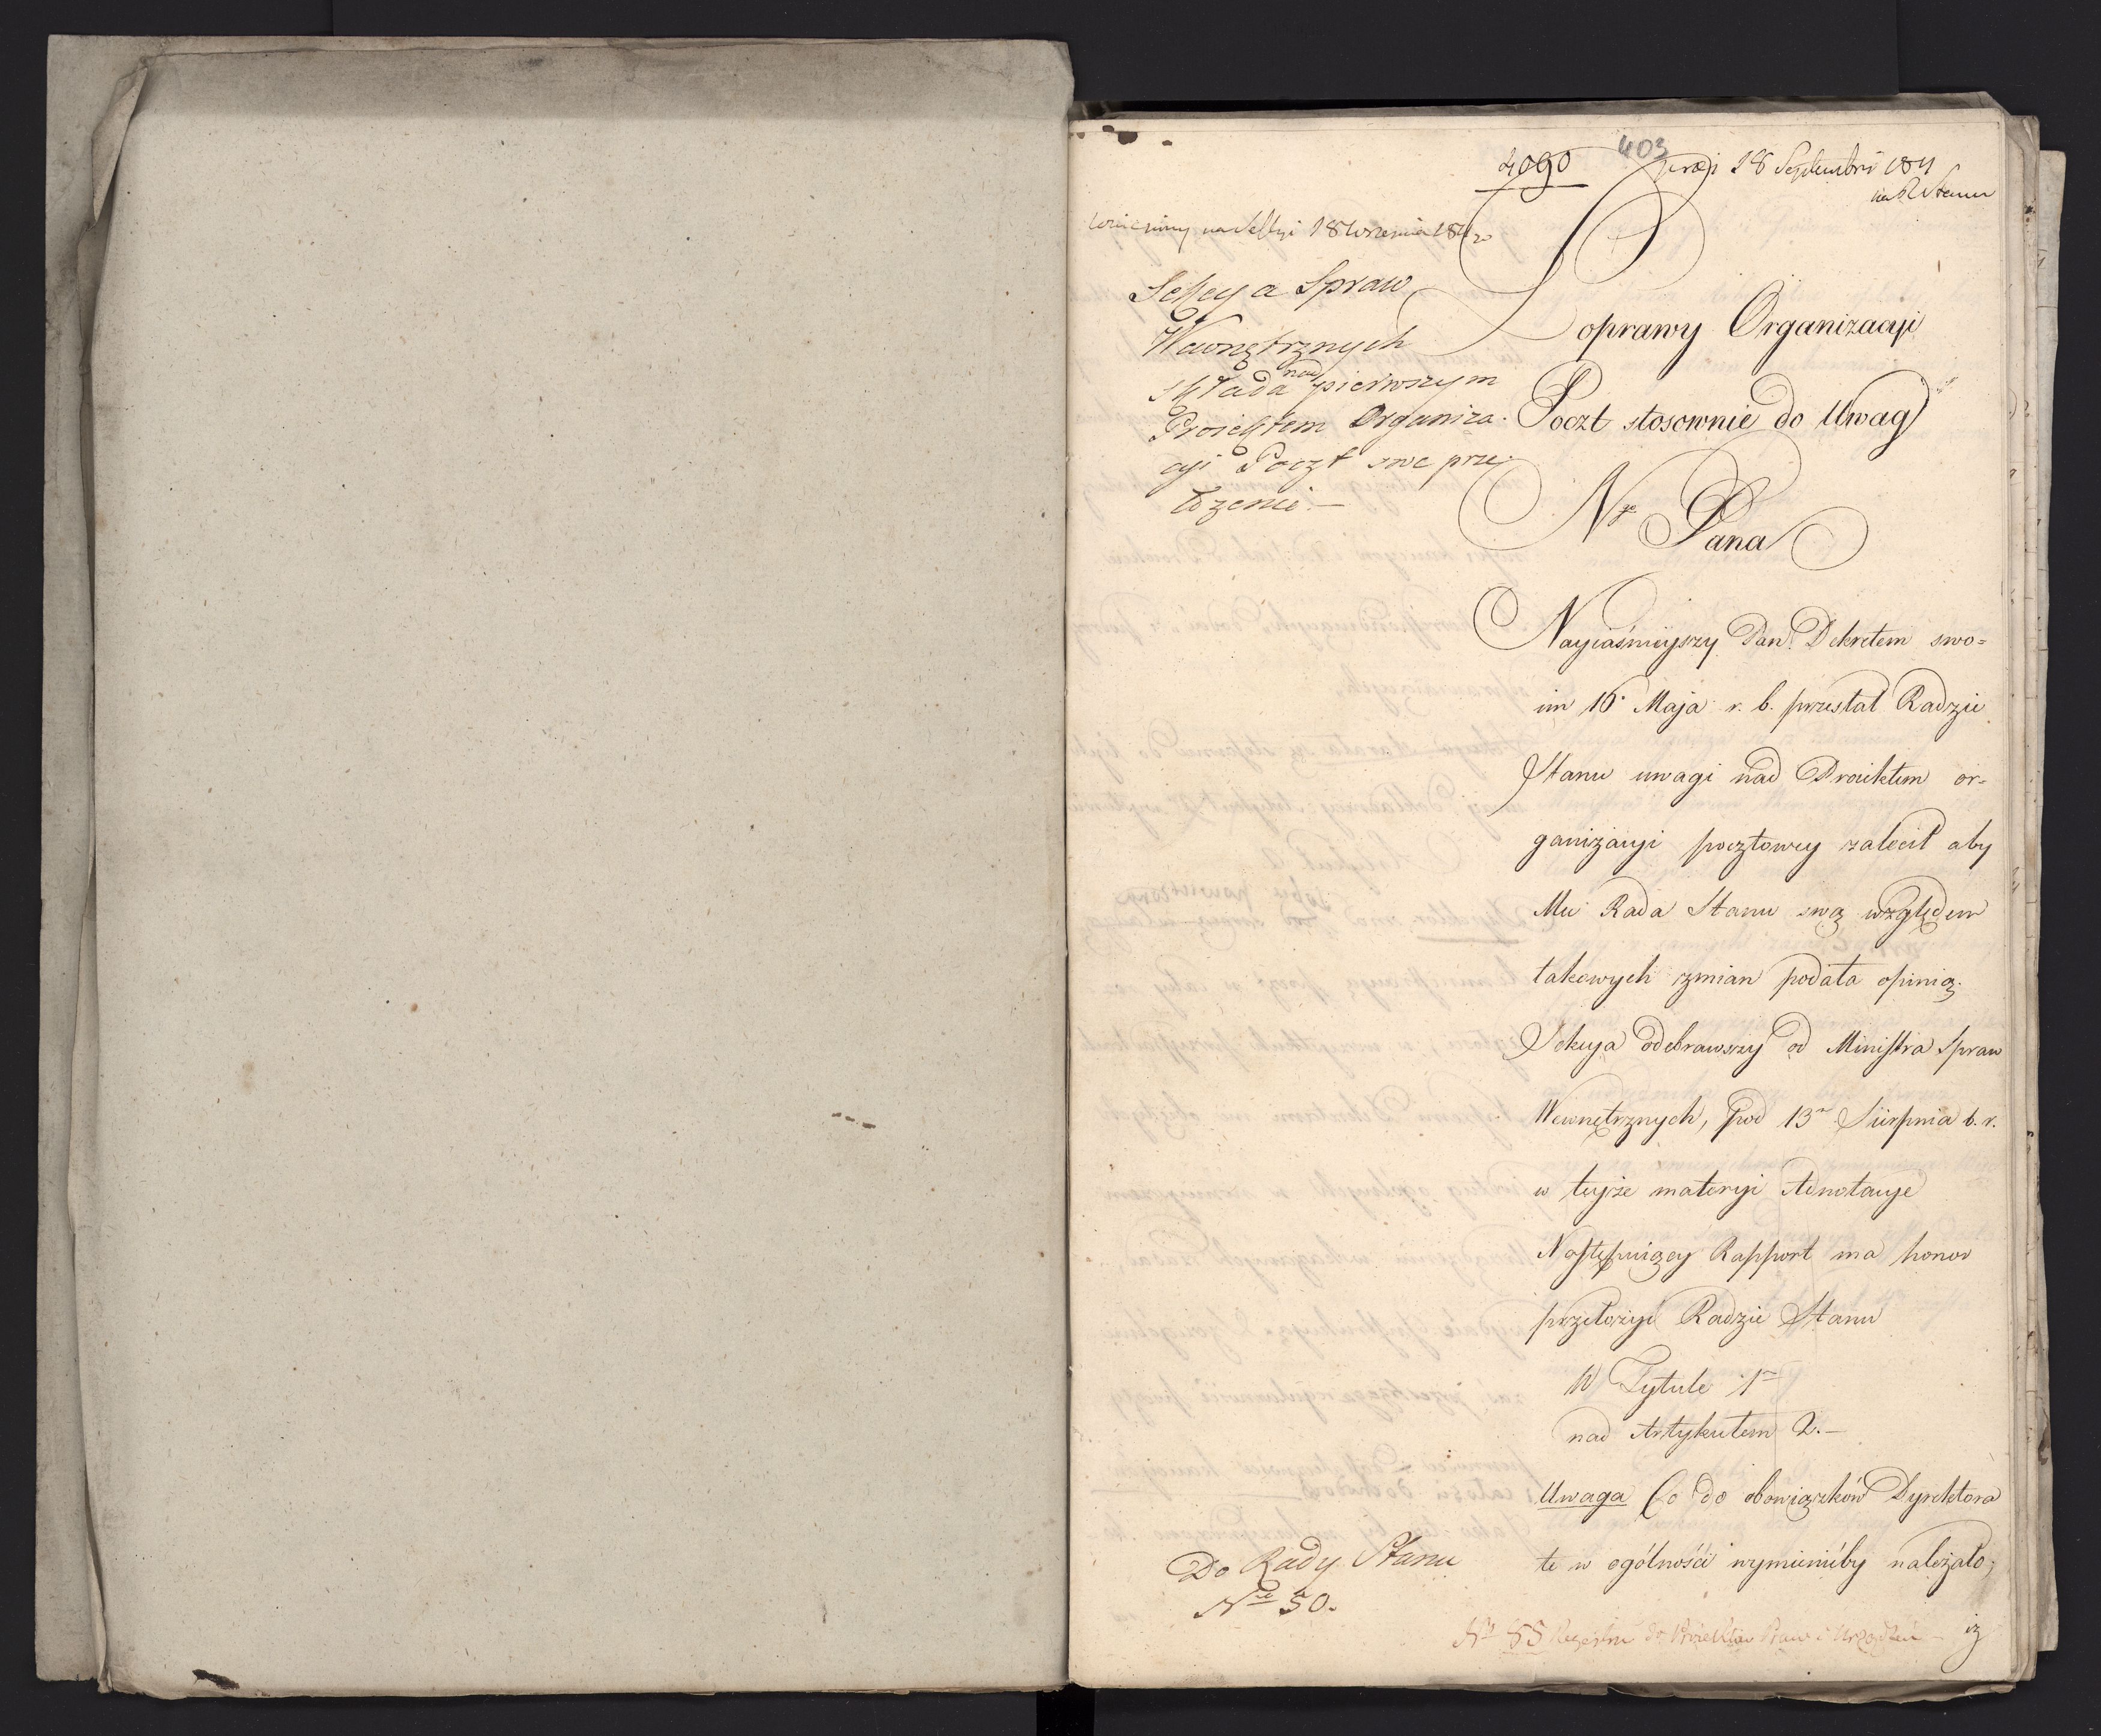 403
4090
præs 18 Septembris 1811
na R Stanu
wniesiony na Sessyi 18 Września 1811 ro
Sekcya Spraw
Wewnętrznych
składa nad pierwszym
Proiektem Organiza-
cyi Poczt swe prze-
łożenie.—
Poprawy Organizacyi
Poczt stosownie do Uwag
Ngo Pana
Nayiaśnieyszy Pan Dekretem swo=
im 16. Maja r. b. przesłał Radzie
Stanu uwagi nad Proiektem or=
ganizacyi pocztowey zalecił aby
Mu Rada Stanu swą względem
takowych zmian podała opinią.
Sekcya odebrawszy od Ministra Spraw
Wewnętrznych, pod 13m Sierpnia b. r.
w teyże materyi Adnotacye
Następuiący Rapport ma honor
przełożyć Radzie Stanu
W Tytule 1m
nad Artykułem 2.—
Uwaga Co do obowiązków Dyrektora
te w ogólności wymienićby należało;
iż
Do Rady Stanu
Nro 50.
No 55 Regestru do Proiektów Praw i Urządzeń —